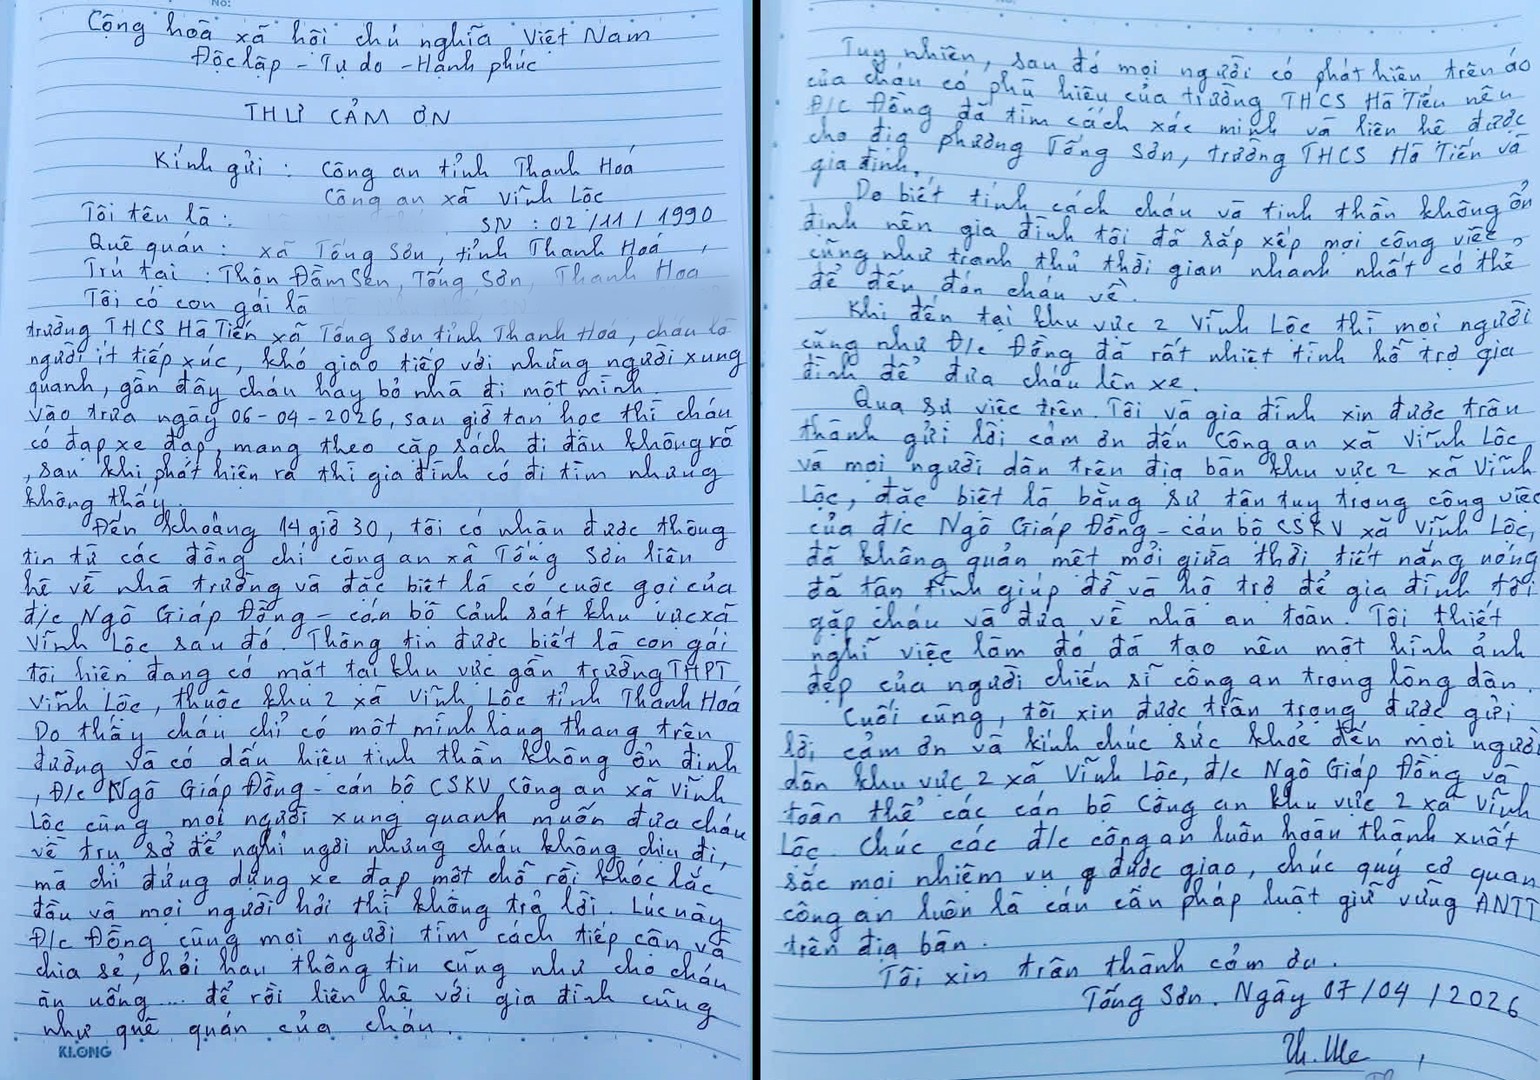 Cộng hoà xã hội chủ nghĩa Việt Nam
Độc lập - Tự do - Hạnh phúc
THƯ CẢM ƠN
Kính gửi : Công an tỉnh Thanh Hoá
Công an xã Vĩnh Lộc
Tôi tên là : SN : 02/11/1990
Quê quán : xã Tống Sơn, tỉnh Thanh Hoá,
Trú tại : Thôn Đầm Sen, Tống Sơn, Thanh Hoa
Tôi có con gái là
trường THCS Hà Tiến xã Tống Sơn tỉnh Thanh Hoa, cháu là
người ít tiếp xúc, khó giao tiếp với những người xung
quanh, gần đây cháu hay bỏ nhà đi một mình.
Vào trưa ngày 06-04-2026, sau giờ tan học thì cháu
có đạp xe đạp, mang theo cặp sách đi đâu không rõ
, sau khi phát hiện ra thì gia đình có đi tìm nhưng
không thấy.
Đến khoảng 14 giờ 30, tôi có nhận được thông
tin từ các đồng chí công an xã Tống Sơn liên
hệ về nhà trường và đặc biệt là có cuộc gọi của
đ/c Ngô Giáp Đồng - cán bộ Cảnh sát khu vực xã
Vĩnh Lộc sau đó. Thông tin được biết là con gái
tôi hiện đang có mặt tại khu vực gần trường THPT
Vĩnh Lộc, thuộc khu 2 xã Vĩnh Lộc tỉnh Thanh Hoá
Do thấy cháu chỉ có một mình lang thang trên
đường và có dấu hiệu tinh thần không ổn định
, Đ/c Ngô Giáp Đồng - cán bộ CSKV Công an xã Vĩnh
Lộc cùng mọi người xung quanh muốn đưa cháu
về trụ sở để nghỉ ngơi nhưng cháu không chịu đi,
mà chỉ đứng dựng xe đạp một chỗ rồi khóc lắc
đầu và mọi người hỏi thì không trả lời. Lúc này
Đ/c Đồng cùng mọi người tìm cách tiếp cận và
chia sẻ, hỏi han thông tin cũng như cho cháu
ăn uống ... để rồi liên hệ với gia đình cũng
như quê quán của cháu.
KLONG
Tuy nhiên, sau đó mọi người có phát hiện trên áo
của cháu có phù hiệu của trường THCS Hà Tiến nên
Đ/c Đồng đã tìm cách xác minh và liên hệ được
cho địa phương Tống Sơn, trường THCS Hà Tiến và
gia đình.
Do biết tính cách cháu và tinh thần không ổn
định nên gia đình tôi đã sắp xếp mọi công việc
cũng như tranh thủ thời gian nhanh nhất có thể
để đến đón cháu về.
Khi đến tại khu vực 2 Vĩnh Lộc thì mọi người
cũng như Đ/c Đồng đã rất nhiệt tình hỗ trợ gia
đình để đưa cháu lên xe.
Qua sự việc trên. Tôi và gia đình xin được trân
thành gửi lời cảm ơn đến Công an xã Vĩnh Lộc
và mọi người dân trên địa bàn khu vực 2 xã Vĩnh
Lộc, đặc biệt là bằng sự tận tụy trong công việc
của đ/c Ngô Giáp Đồng - cán bộ CSKV xã Vĩnh Lộc,
đã không quản mệt mỏi giữa thời tiết nắng nóng
đã tận tình giúp đỡ và hỗ trợ để gia đình tôi
gặp cháu và đưa về nhà an toàn. Tôi thiết
nghĩ việc làm đó đã tạo nên một hình ảnh
đẹp của người chiến sĩ công an trong lòng dân.
Cuối cùng, tôi xin được trân trọng được gửi
lời cảm ơn và kính chúc sức khoẻ đến mọi người
dân khu vực 2 xã Vĩnh Lộc, đ/c Ngô Giáp Đồng và
toàn thể các cán bộ Công an khu vực 2 xã Vĩnh
Lộc. Chúc các đ/c công an luôn hoàn thành xuất
sắc mọi nhiệm vụ được giao, chúc quý cơ quan
công an luôn là cán cân pháp luật giữ vững ANTT
trên địa bàn.
Tôi xin trân thành cảm ơn.
Tống Sơn. Ngày 07/04/2026